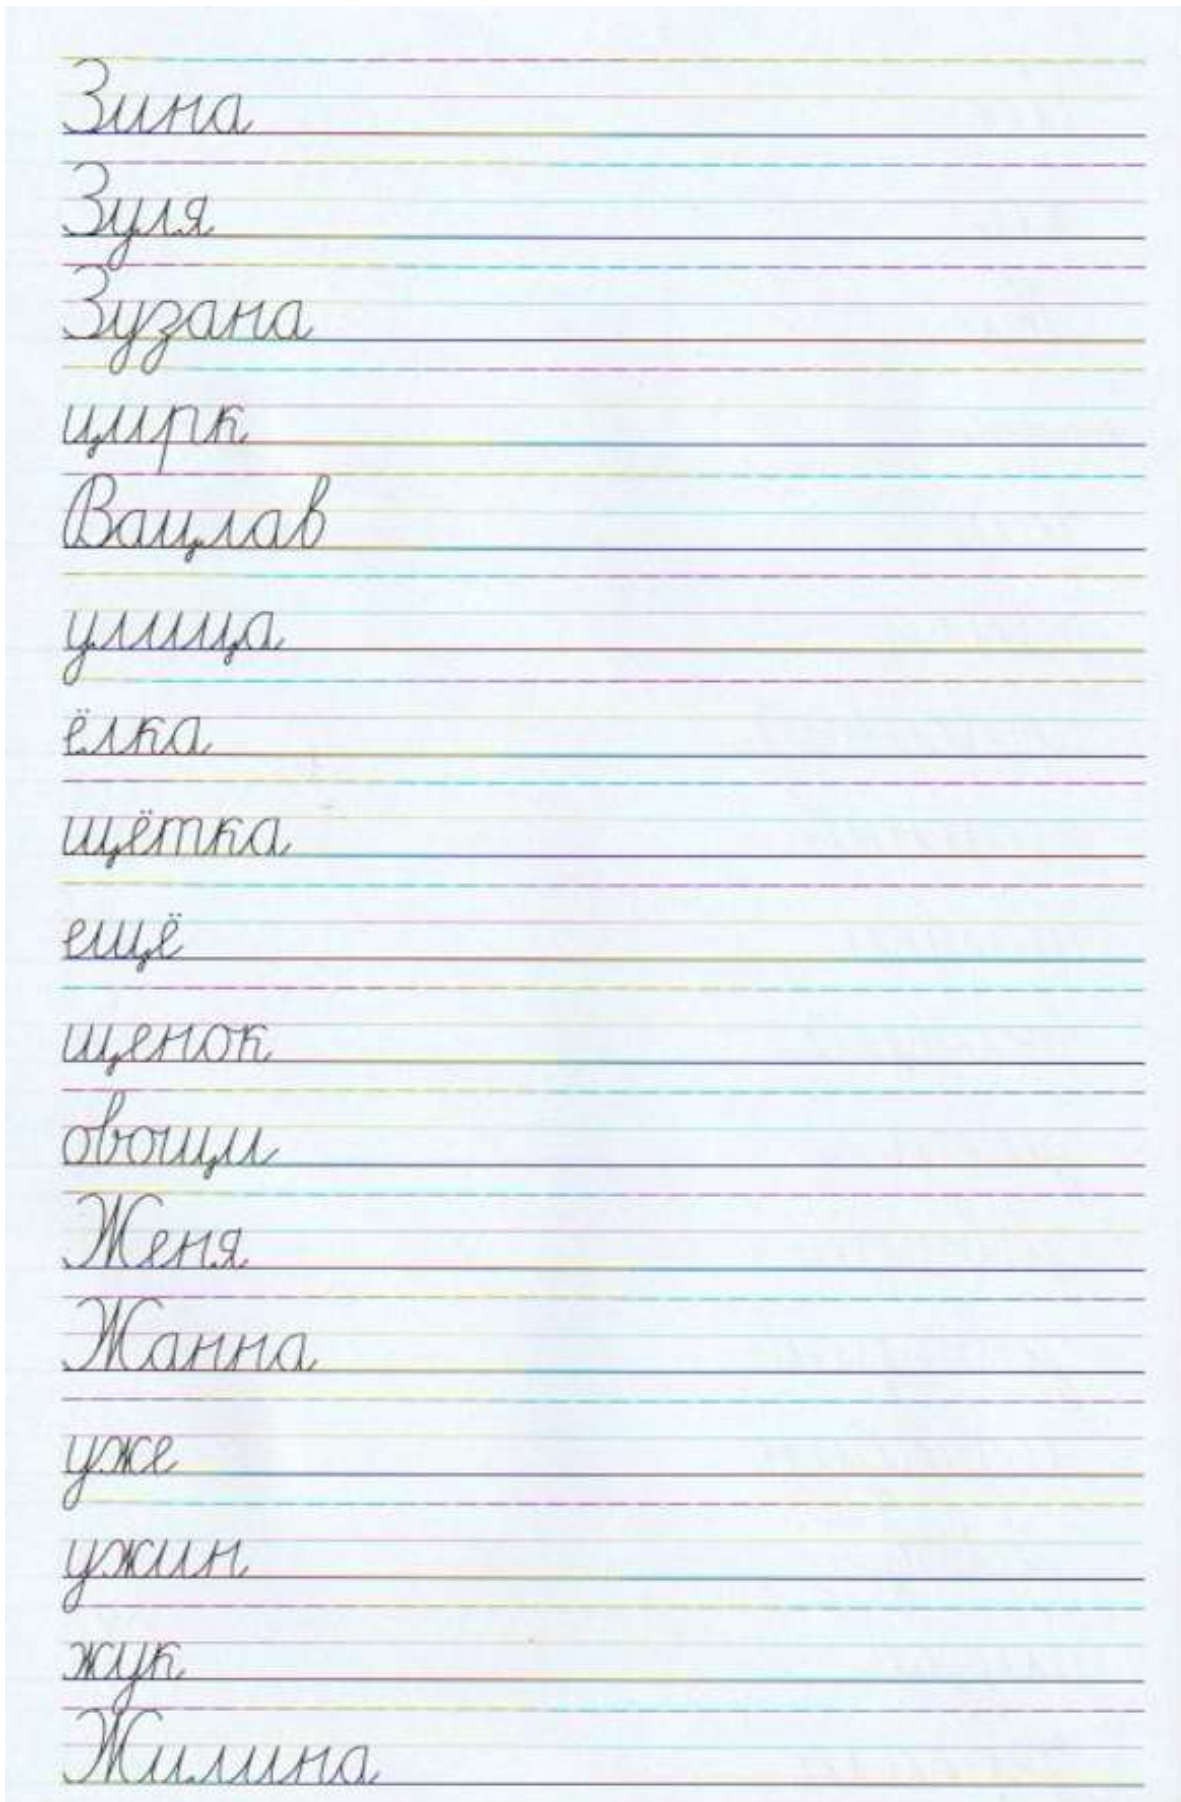 Зина
Зуля
Зузана
цирк
Вацлав
улица
ёлка
щётка
ещё
щенок
овощи
Женя
Жанна
уже
ужин
жук
Жилина